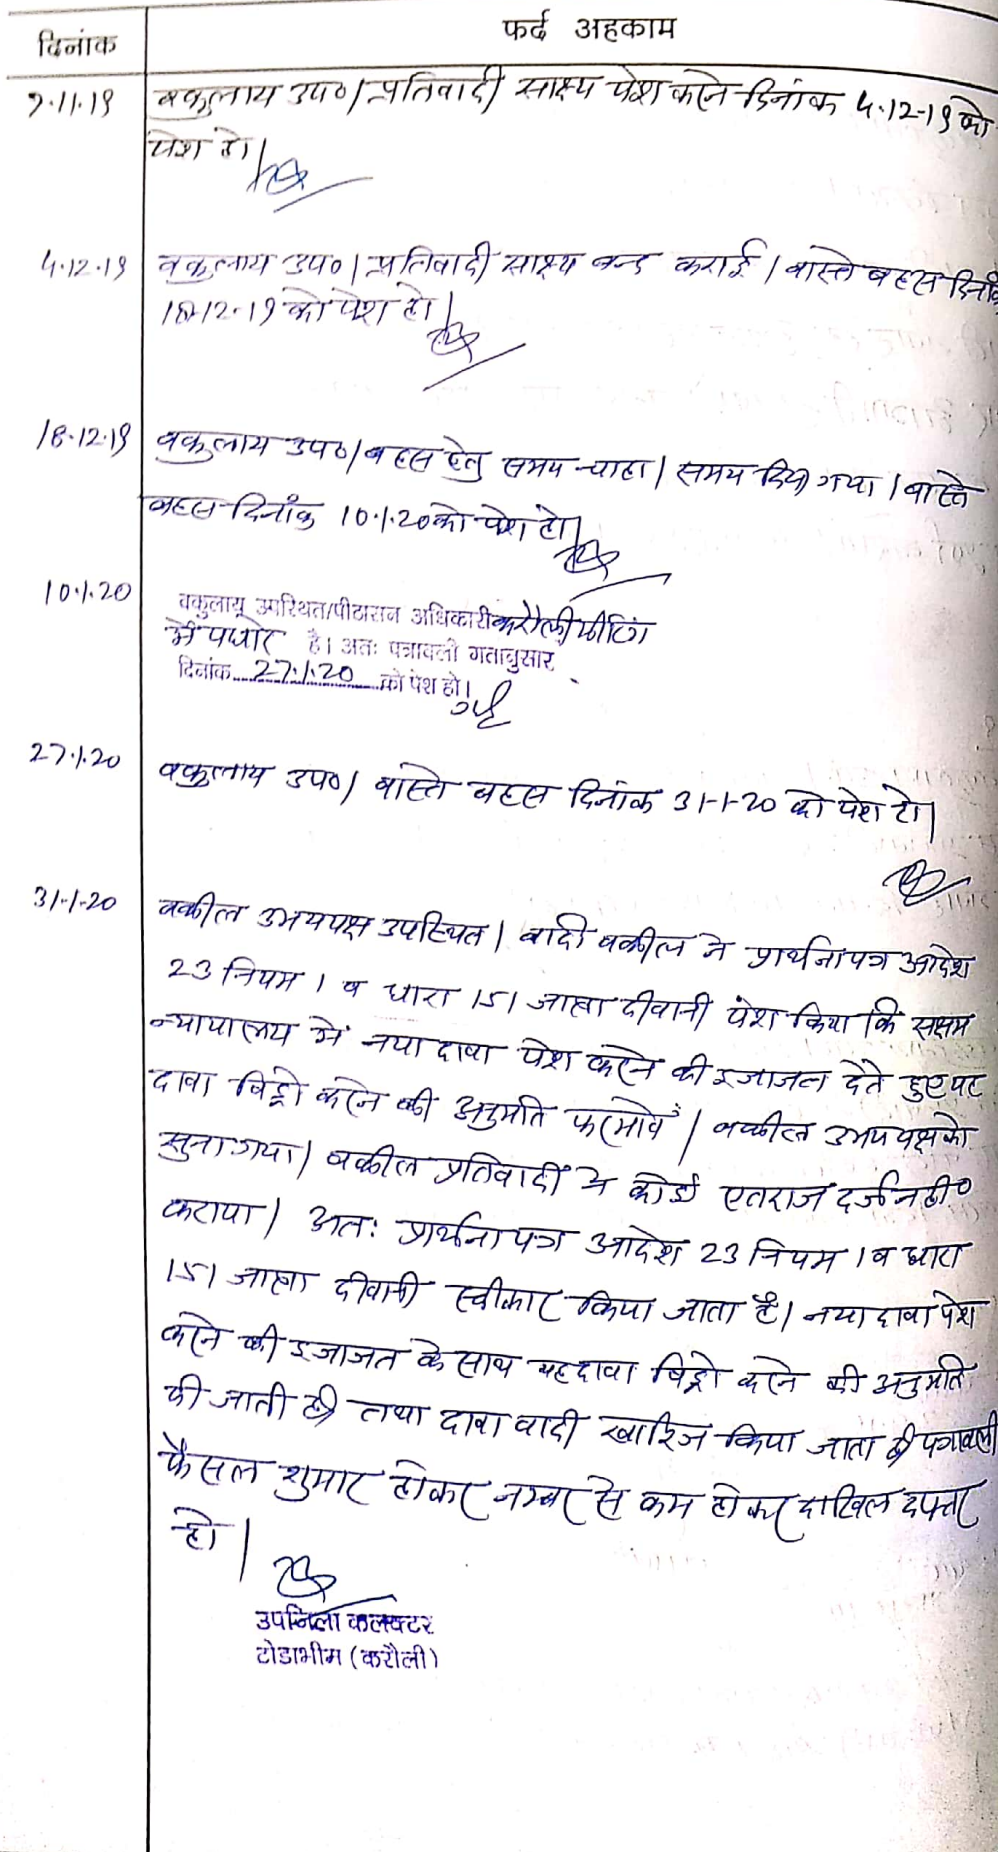 दिनांक
फर्द अहकाम
7.11.19
वकुलाय उप०/प्रतिवादी साक्ष्य पेश करने दिनांक 4.12-19 को
पेश हो।
4.12.19
वकुलाय उप०/प्रतिवादी साक्ष्य बन्द कराई/वास्ते बहस दिनांक
18-12-19 को पेश हो।
18.12.19
वकुलाय उप०/बहस हेतु समय चाहा/समय दिया गया/वास्ते
बहस दिनांक 10.1.20 को पेश हो।
10.1.20
वकुलाय उपस्थित/पीठासन अधिकारी करौली मीटिंग
में पधारे है। अतः पत्रावली गतानुसार
दिनांक 27.1.20 को पेश हो।
27.1.20
वकुलाय उप०/ वास्ते बहस दिनांक 31-1-20 को पेश हो।
31-1-20
वकील उभयपक्ष उपस्थित। वादी वकील ने प्रार्थनापत्र आदेश
23 नियम 1 व धारा 151 जाब्ता दीवानी पेश किया कि सक्षम
न्यायालय में नया दावा पेश करने की इजाजत देते हुए यह
दावा विड्रो करने की अनुमति फरमावें। वकील उभयपक्ष को
सुना गया। वकील प्रतिवादी ने कोई एतराज दर्ज नही०
कराया। अतः प्रार्थना पत्र आदेश 23 नियम 1 व धारा
151 जाब्ता दीवानी स्वीकार किया जाता है। नया दावा पेश
करने की इजाजत के साथ यह दावा विड्रो करने की अनुमति
दी जाती है तथा दावा वादी खारिज किया जाता है पत्रावली
फैसल शुमार होकर नम्बर से कम होकर दाखिल दफ्तर
हो।
उपजिला कलक्टर
टोडाभीम (करौली)